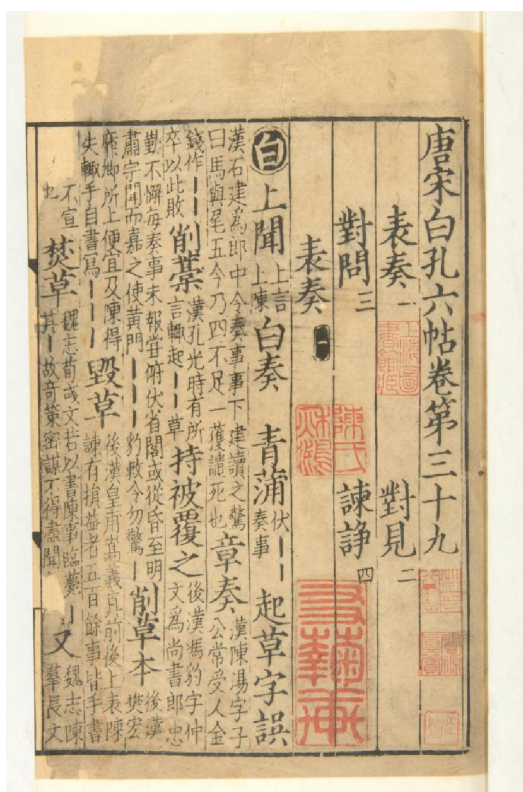 唐宋白孔六帖卷第三十九
表奏一 對見二
對問三 諫諍四
表奏 一
白 上聞 上言上陳 白奏 青蒲 伏丨丨奏事 起草字誤
漢石建爲郎中令奏事事下建讀之驚
曰馬與尾五今乃四不足一獲譴死也 章奏 漢陳湯字子公常受人金
錢作丨丨卒以此敗 削藁 漢孔光時有所言輒起丨丨草 持被覆之 後漢馮豹字仲文爲尚書郎忠
勤不懈每奏事未報甞俯伏省閣或從昏至明
肅宗聞而嘉之使黃門丨丨豹敕令勿驚丨 削草本 後漢樊宏
所上便宜及陳得失輒手自書寫丨丨丨 毀草 後漢皇甫嵩義真前後上表陳諫有損益者五百餘事皆手書
不宣也 焚草 魏志荀彧文若以書陳事臨薨丨其丨故奇策密謀不得盡聞 又 魏志陳羣長文
上海圖書館藏